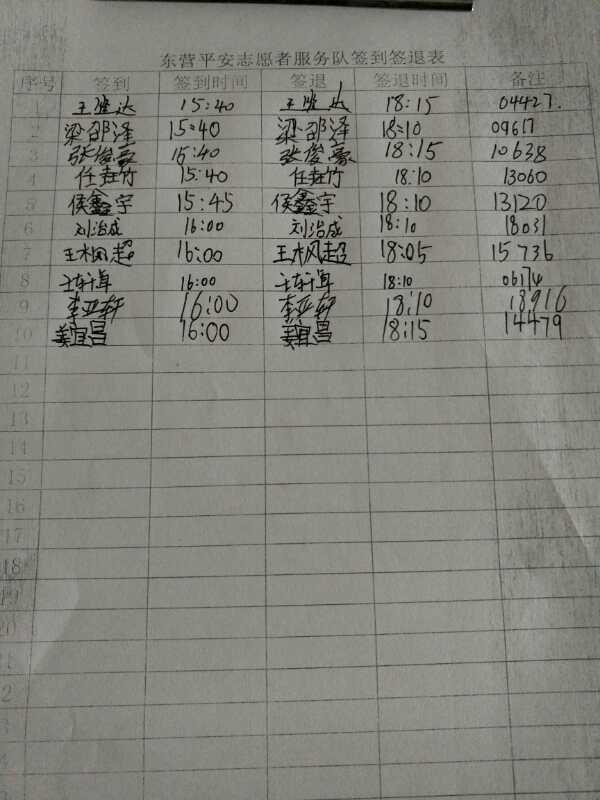 东营平安志愿者服务队签到签退表
序号 签到 签到时间 签退 签退时间 备注
1 王 达 15:40 王 达 18:15 04427.
2 梁邵泽 15:40 梁邵泽 18:10 09617
3 张俊豪 15:40 张俊豪 18:15 10638
4 任 竹 15:40 任 竹 18:10 13060
5 侯鑫宇 15:45 侯鑫宇 18:10 13120
6 刘治成 16:00 刘治成 18:10 18031
7 王枫超 16:00 王枫超 18:05 15736
8 16:00 18:10 06174
9 李亚轩 16:00 李亚轩 18:10 18916
10 姜宜昌 16:00 姜宜昌 18:15 14479
11
12
13
14
15
16
17
18
19
20